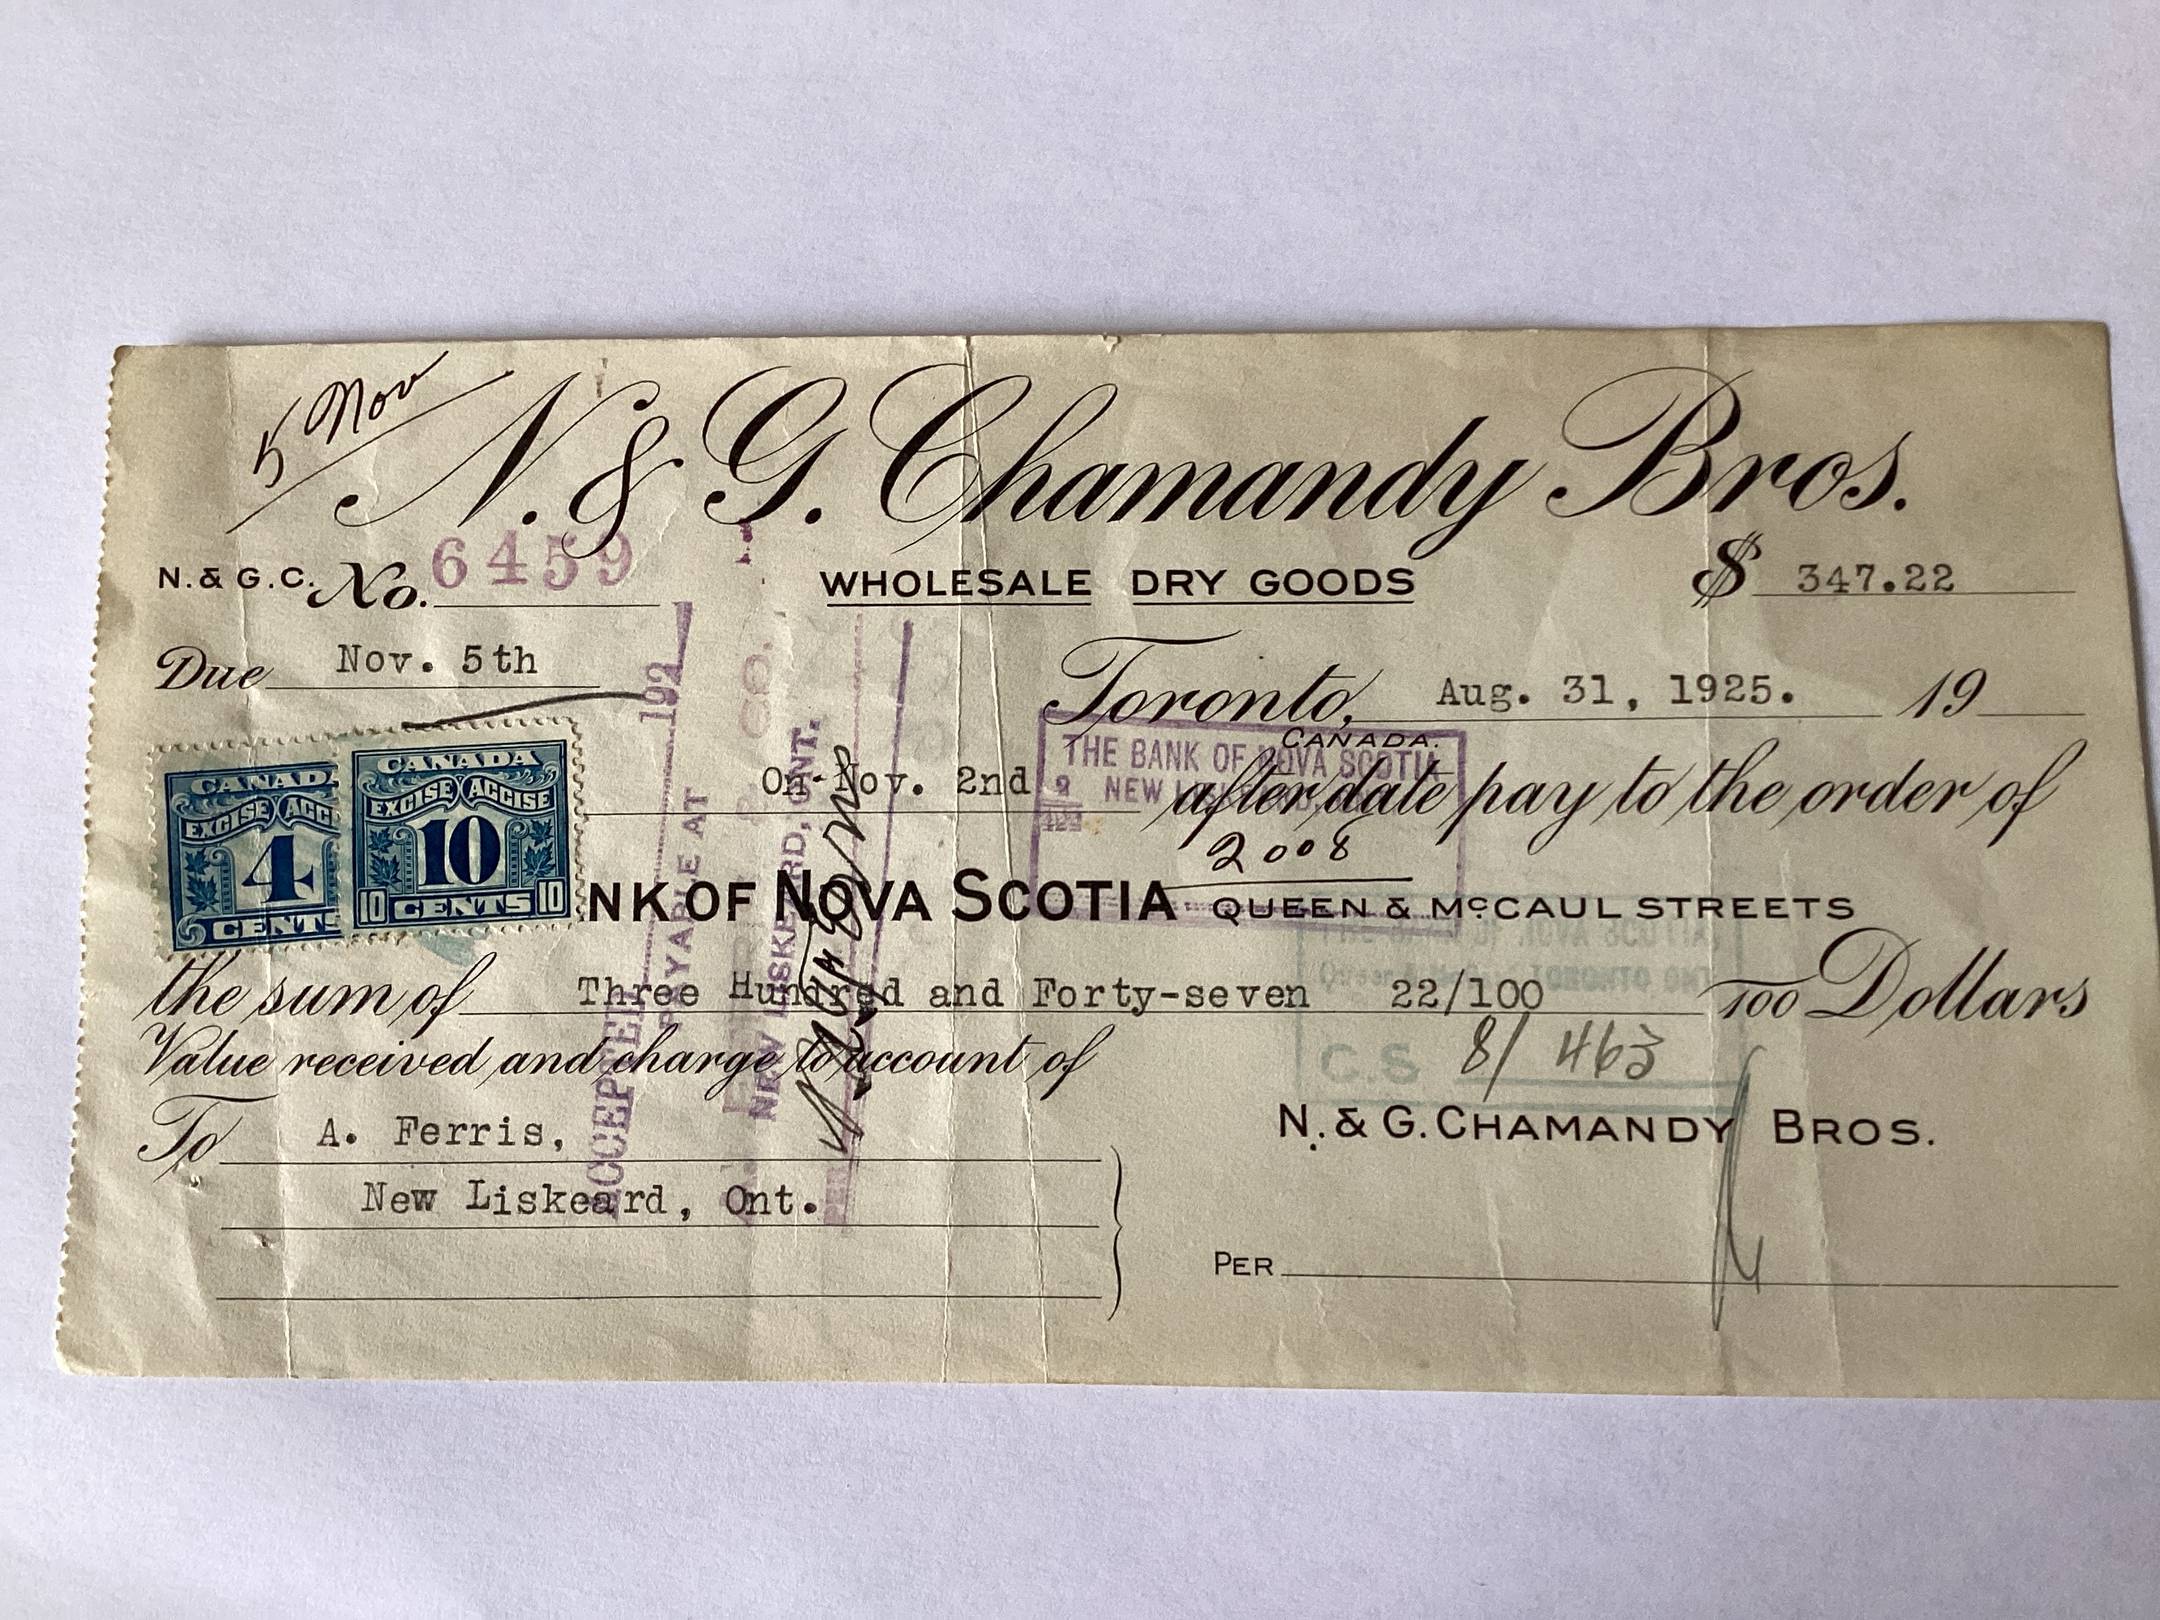 5 Nov
N. & G. Chamandy Bros.
N. & G.C. No. 6459
WHOLESALE DRY GOODS
$ 347.22
Due Nov. 5th
Toronto, Aug. 31, 1925. 19
CANADA.
On Nov. 2nd after date pay to the order of
THE BANK OF NOVA SCOTIA
NEW
2008
CANADA
EXCISE ACCISE
4
CENTS
CANADA
EXCISE ACCISE
10
10 CENTS 10
NK OF NOVA SCOTIA QUEEN & McCAUL STREETS
the sum of Three Hundred and Forty-seven 22/100 100 Dollars
Value received and charge to account of
C.S 8/ 463
To A. Ferris,
New Liskeard, Ont.
N. & G. CHAMANDY BROS.
PER
ACCEPTED 192
PAYABLE AT
CO.
NEW LISKEARD, ONT.
PER